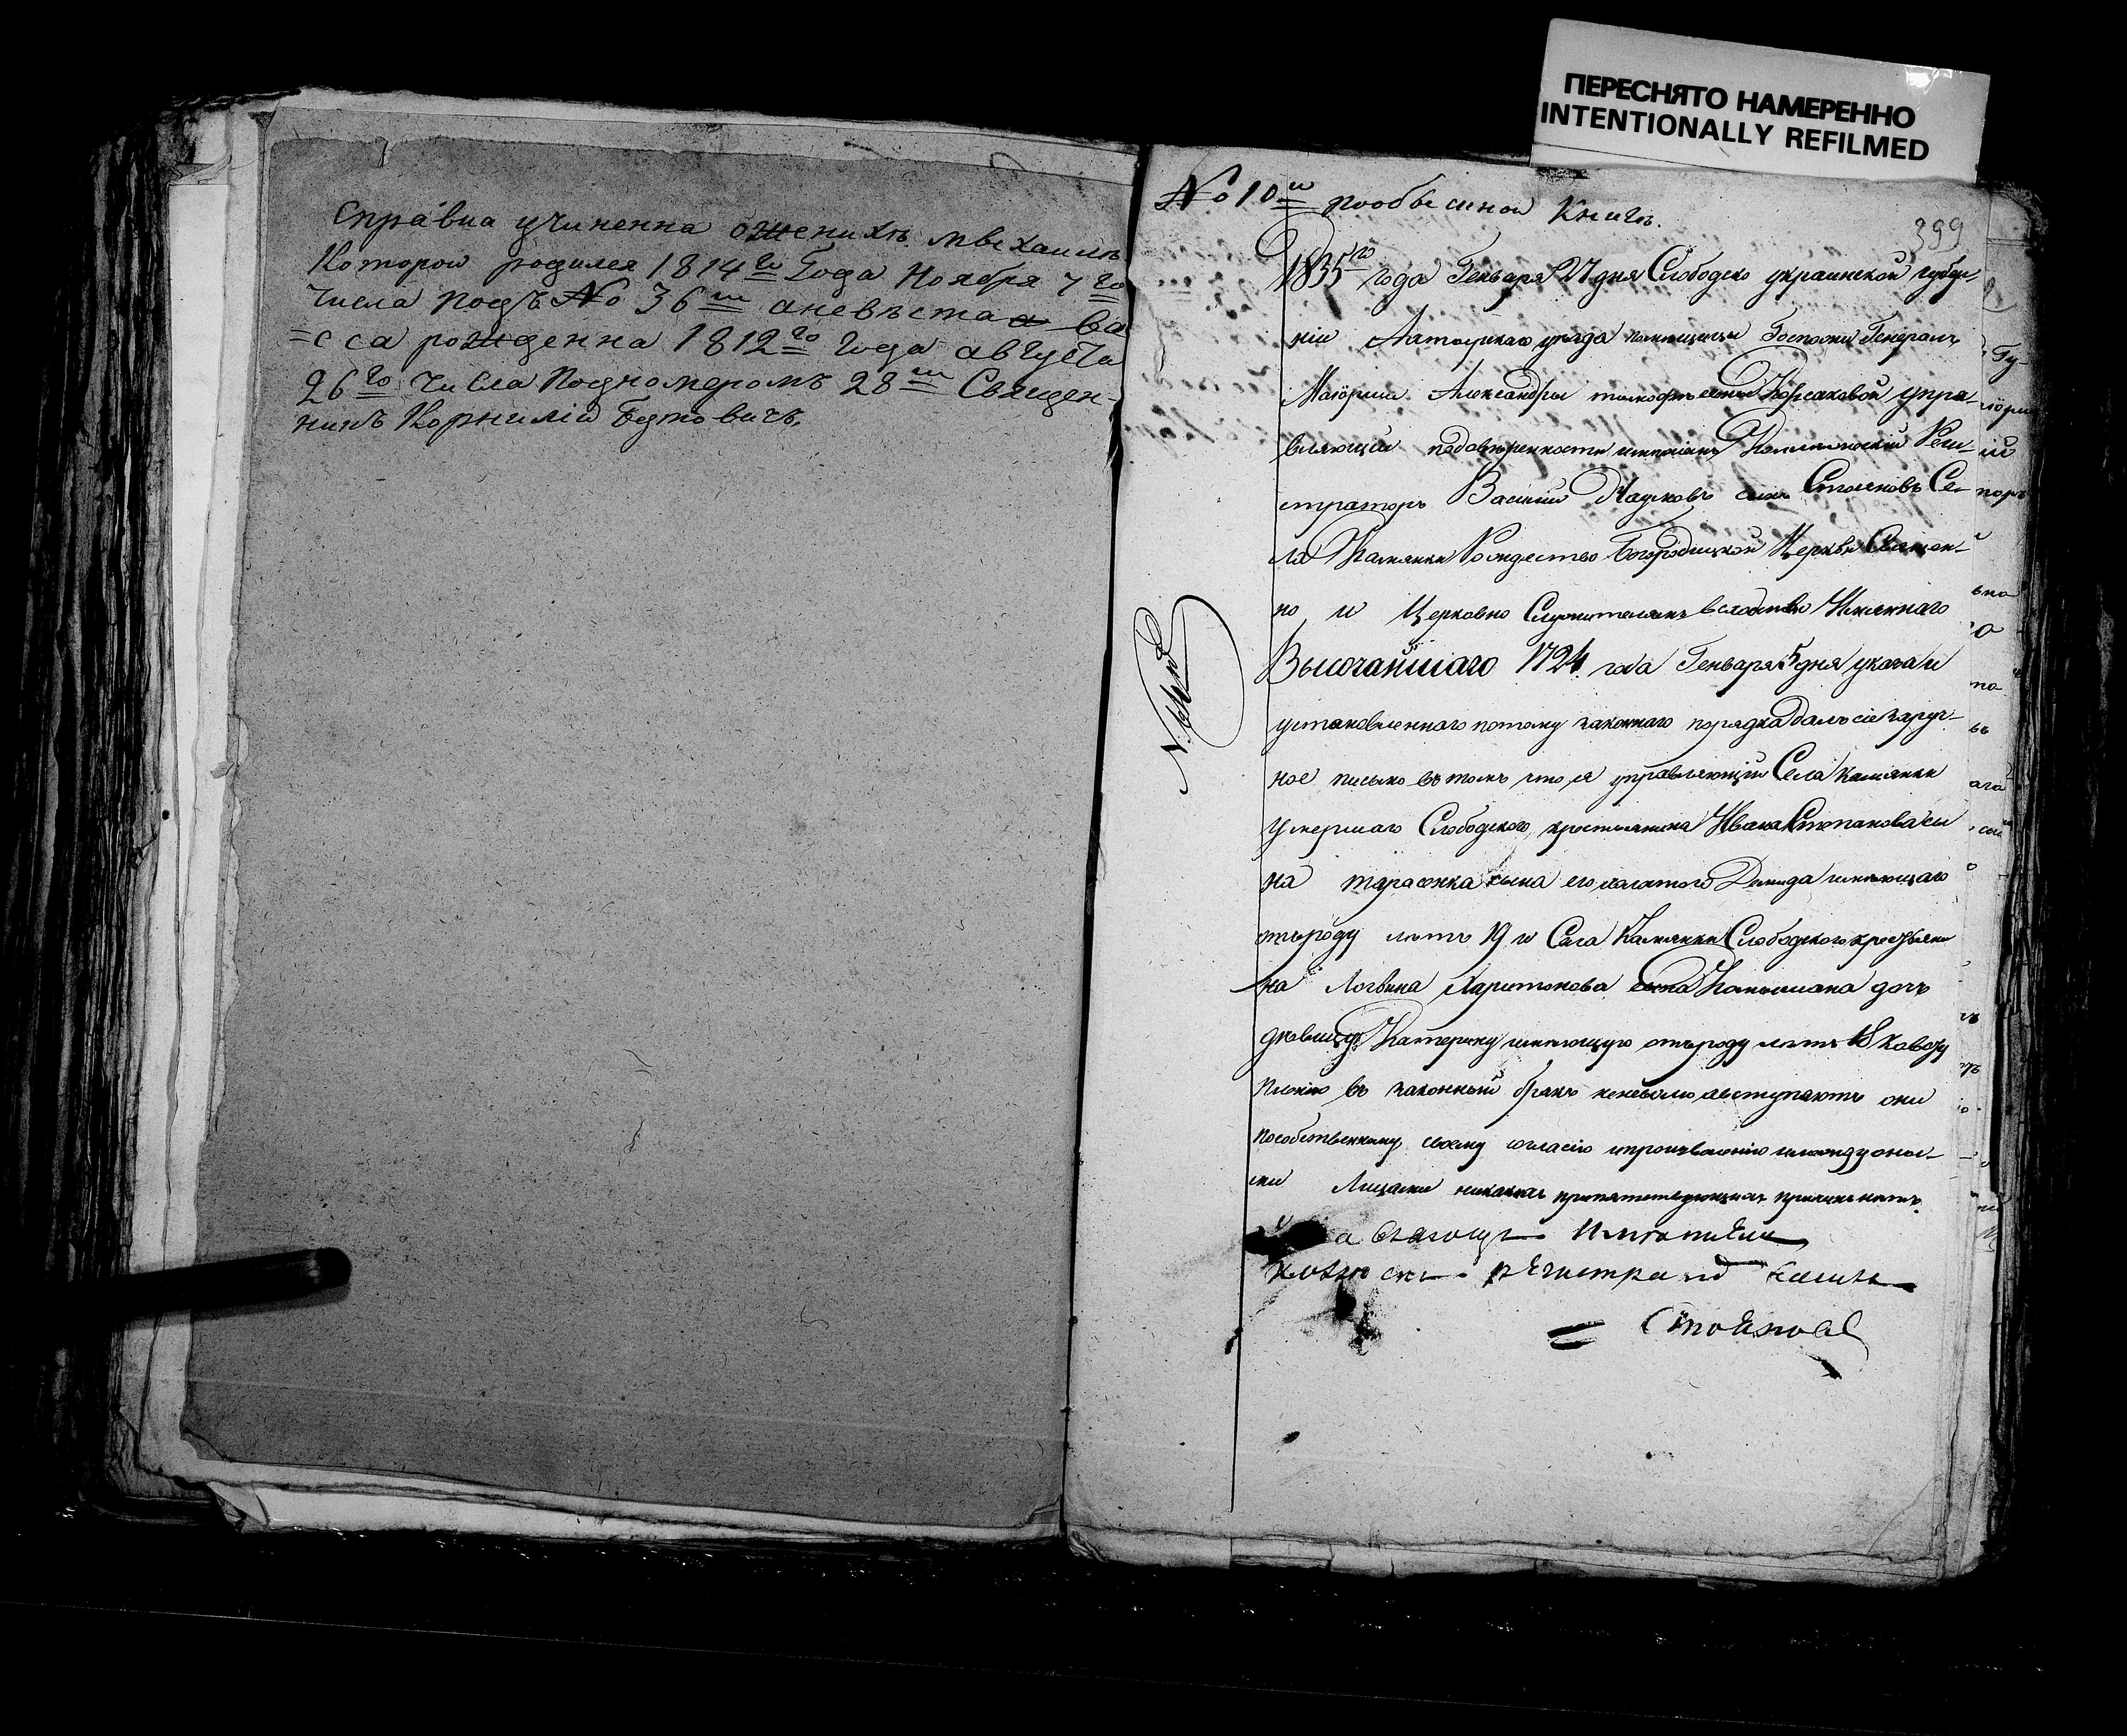 ПЕРЕСНЯТО НАМЕРЕННО
INTENTIONALLY REFILMED
Справка учиненна оженихѣ михаилѣ
Которой родился 1814го Года Ноября 7го
числа подъ No 36м аневѣста ва
=сса рожденна 1812го года августа
26го числа Подномеромъ 28м Священ-
никъ Корнилій Бутковичъ.
No 10й пообыскной Книгѣ.
399
1835го года Генваря 27 дня Слободско украинской губер-
ніи уѣзда помещицы Госпожи Генералъ
Маіорши Александры Корсаковой упра-
вляющій подовѣренности имѣніемъ Реги-
страторъ Василій сынъ Стояновъ Се-
ла Камянки Рождество Богородицкой Церкви Священ-
но и Церковно Служителямъ вследствіе Имяннаго
Высочайшаго 1724 года Генваря 5 дня указа и
установленнаго потому законнаго порядка далъ сіе заруч-
ное письмо втомъ что я управляющій Села Камянки
Умершаго Слободского крестьянина Ивана Степанова сы
на тарасенка сына его Демида имѣющаго
отъроду летъ 19 и Села Камянки Слободского крестьяни
на Логвина Харитонова сына дочь
дѣвицу Катерину имѣющую отъроду летъ 18 ковозу
пленію въ законный бракъ неневолю авступаютъ они
пособственному своему согласію ипроизволенію имежду оны-
ми Лицами никакихъ препятствующихъ причинъ нетъ.
регистраторъ
Стояновъ